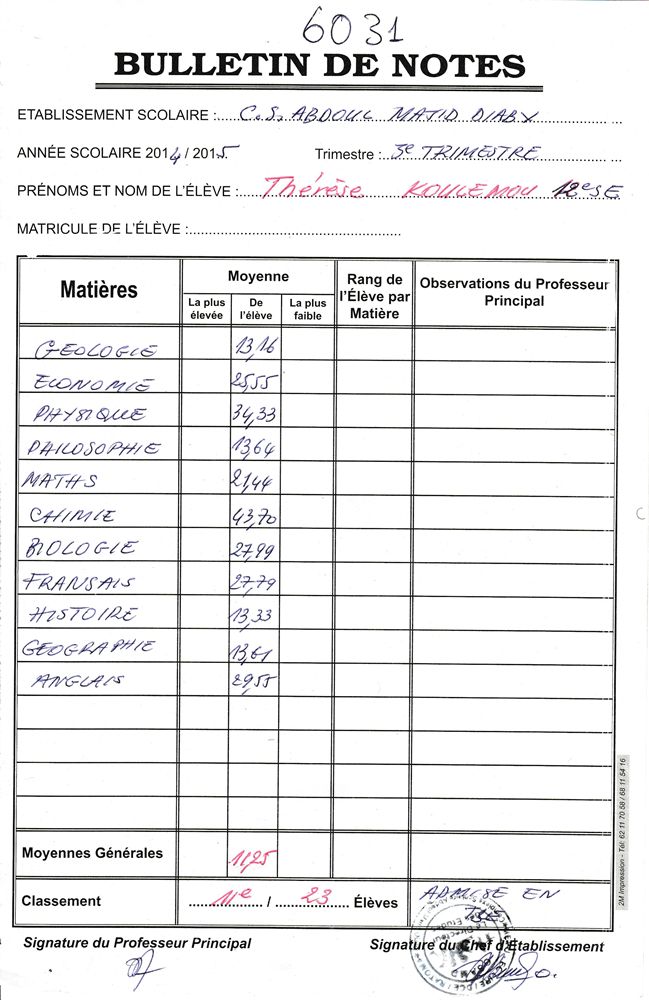 6031
BULLETIN DE NOTES
ETABLISSEMENT SCOLAIRE : C.S. ABDOUL MATID DIABY
ANNÉE SCOLAIRE 2014 / 2015 Trimestre : 3e TRIMESTRE
PRÉNOMS ET NOM DE L'ÉLÈVE : Thérèse KOULEMOU 12e SE
MATRICULE DE L'ÉLÈVE :
Matières Moyenne Rang de l'Élève par Matière Observations du Professeur Principal
La plus élevée De l'élève La plus faible
GEOLOGIE 13,16
ECONOMIE 25,55
PHYSIQUE 34,33
PHILOSOPHIE 13,64
MATHS 21,44
CHIMIE 43,70
BIOLOGIE 27,99
FRANSAIS 27,79
HISTOIRE 13,33
GEOGRAPHIE 13,61
ANGLAIS 29,55
Moyennes Générales 11,25
Classement 11e / 23 Élèves ADMISE EN
Signature du Professeur Principal Signature du Chef d'Établissement
2M Impression - Tél: 62 11 70 58 / 68 11 54 16